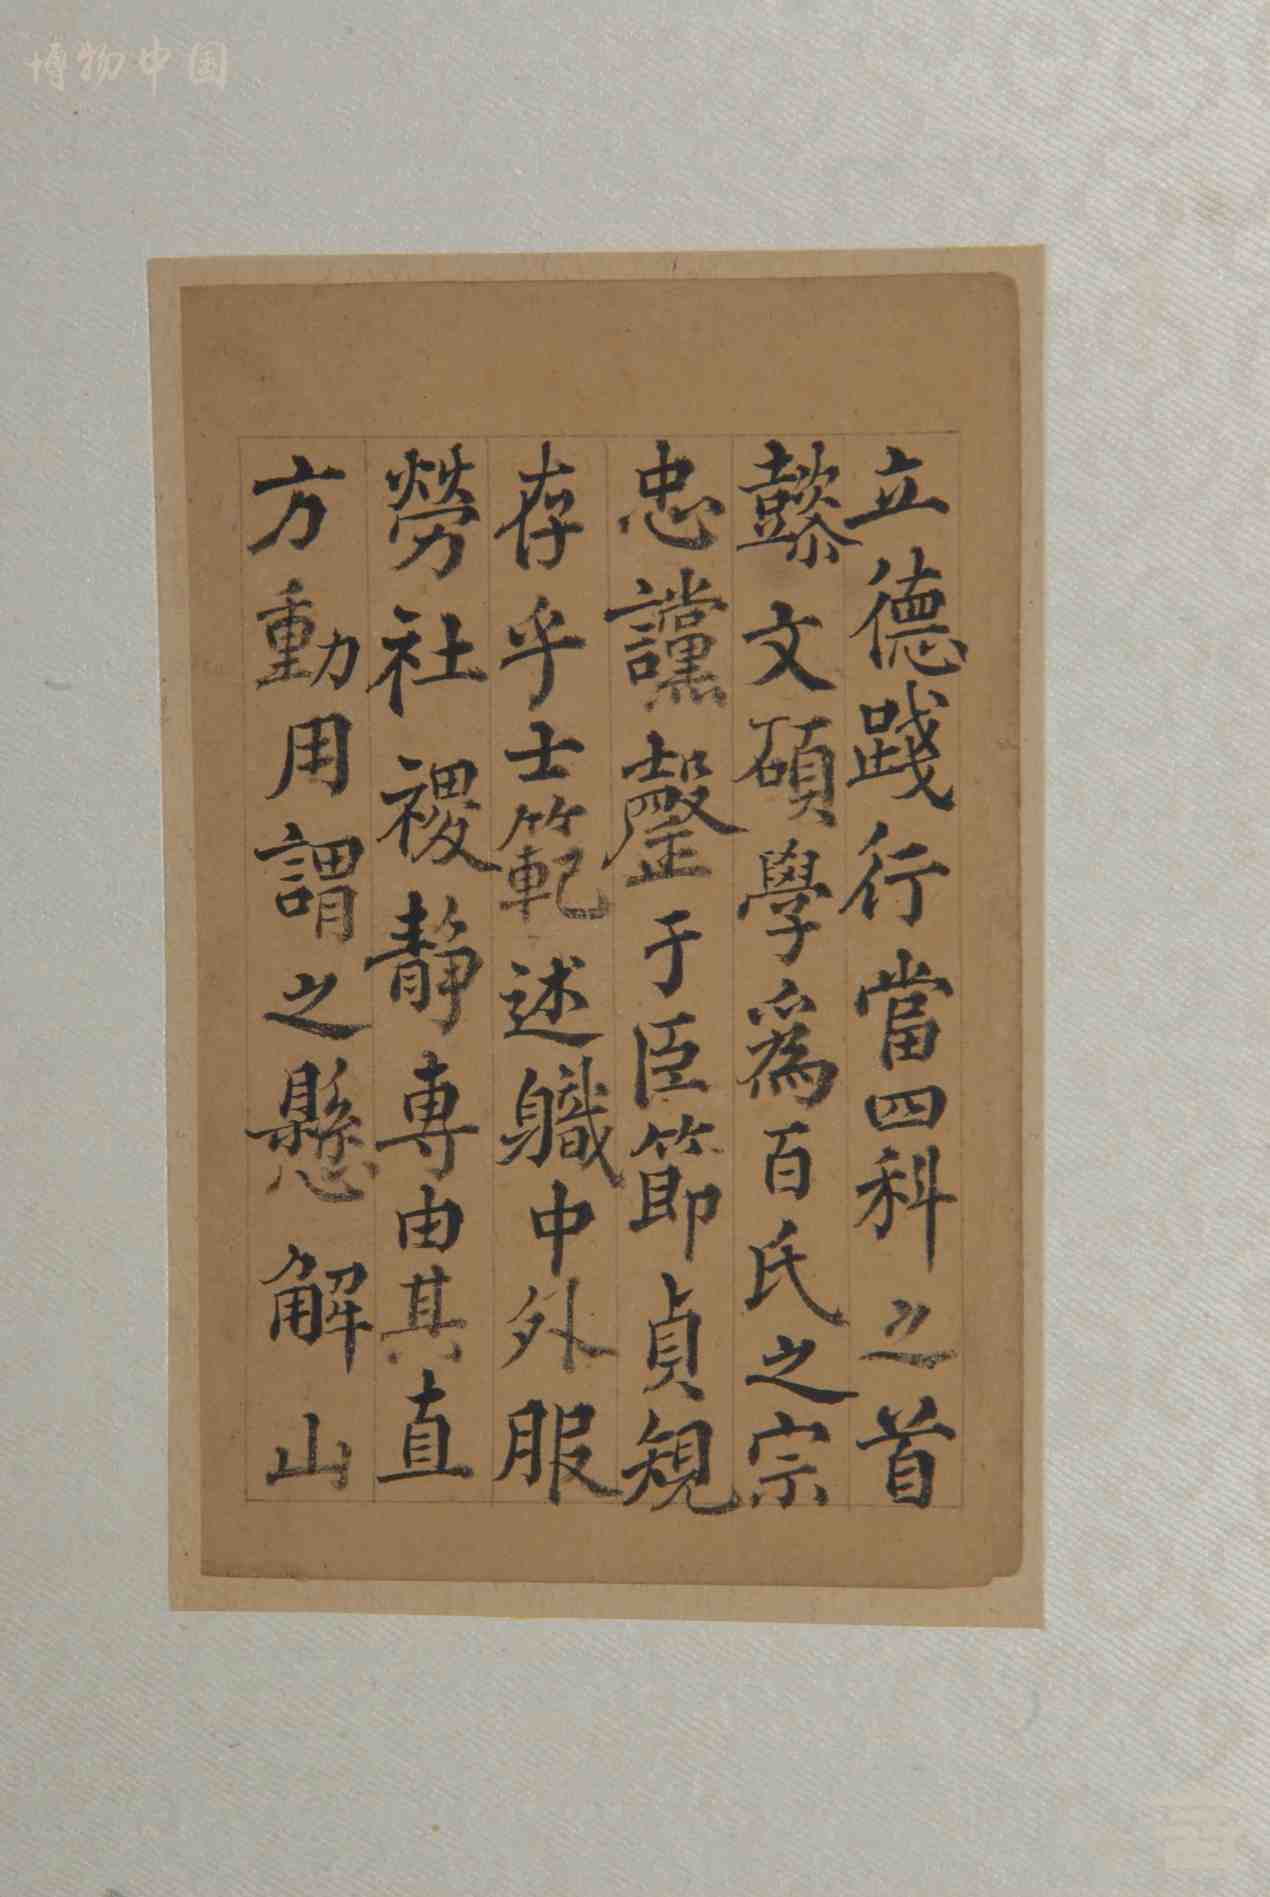 博物中国
立德踐行當四科之首
懿文碩學爲百氏之宗
忠讜罄于臣節貞規
存乎士範述職中外服
勞社稷靜專由其直
方動用謂之懸解山